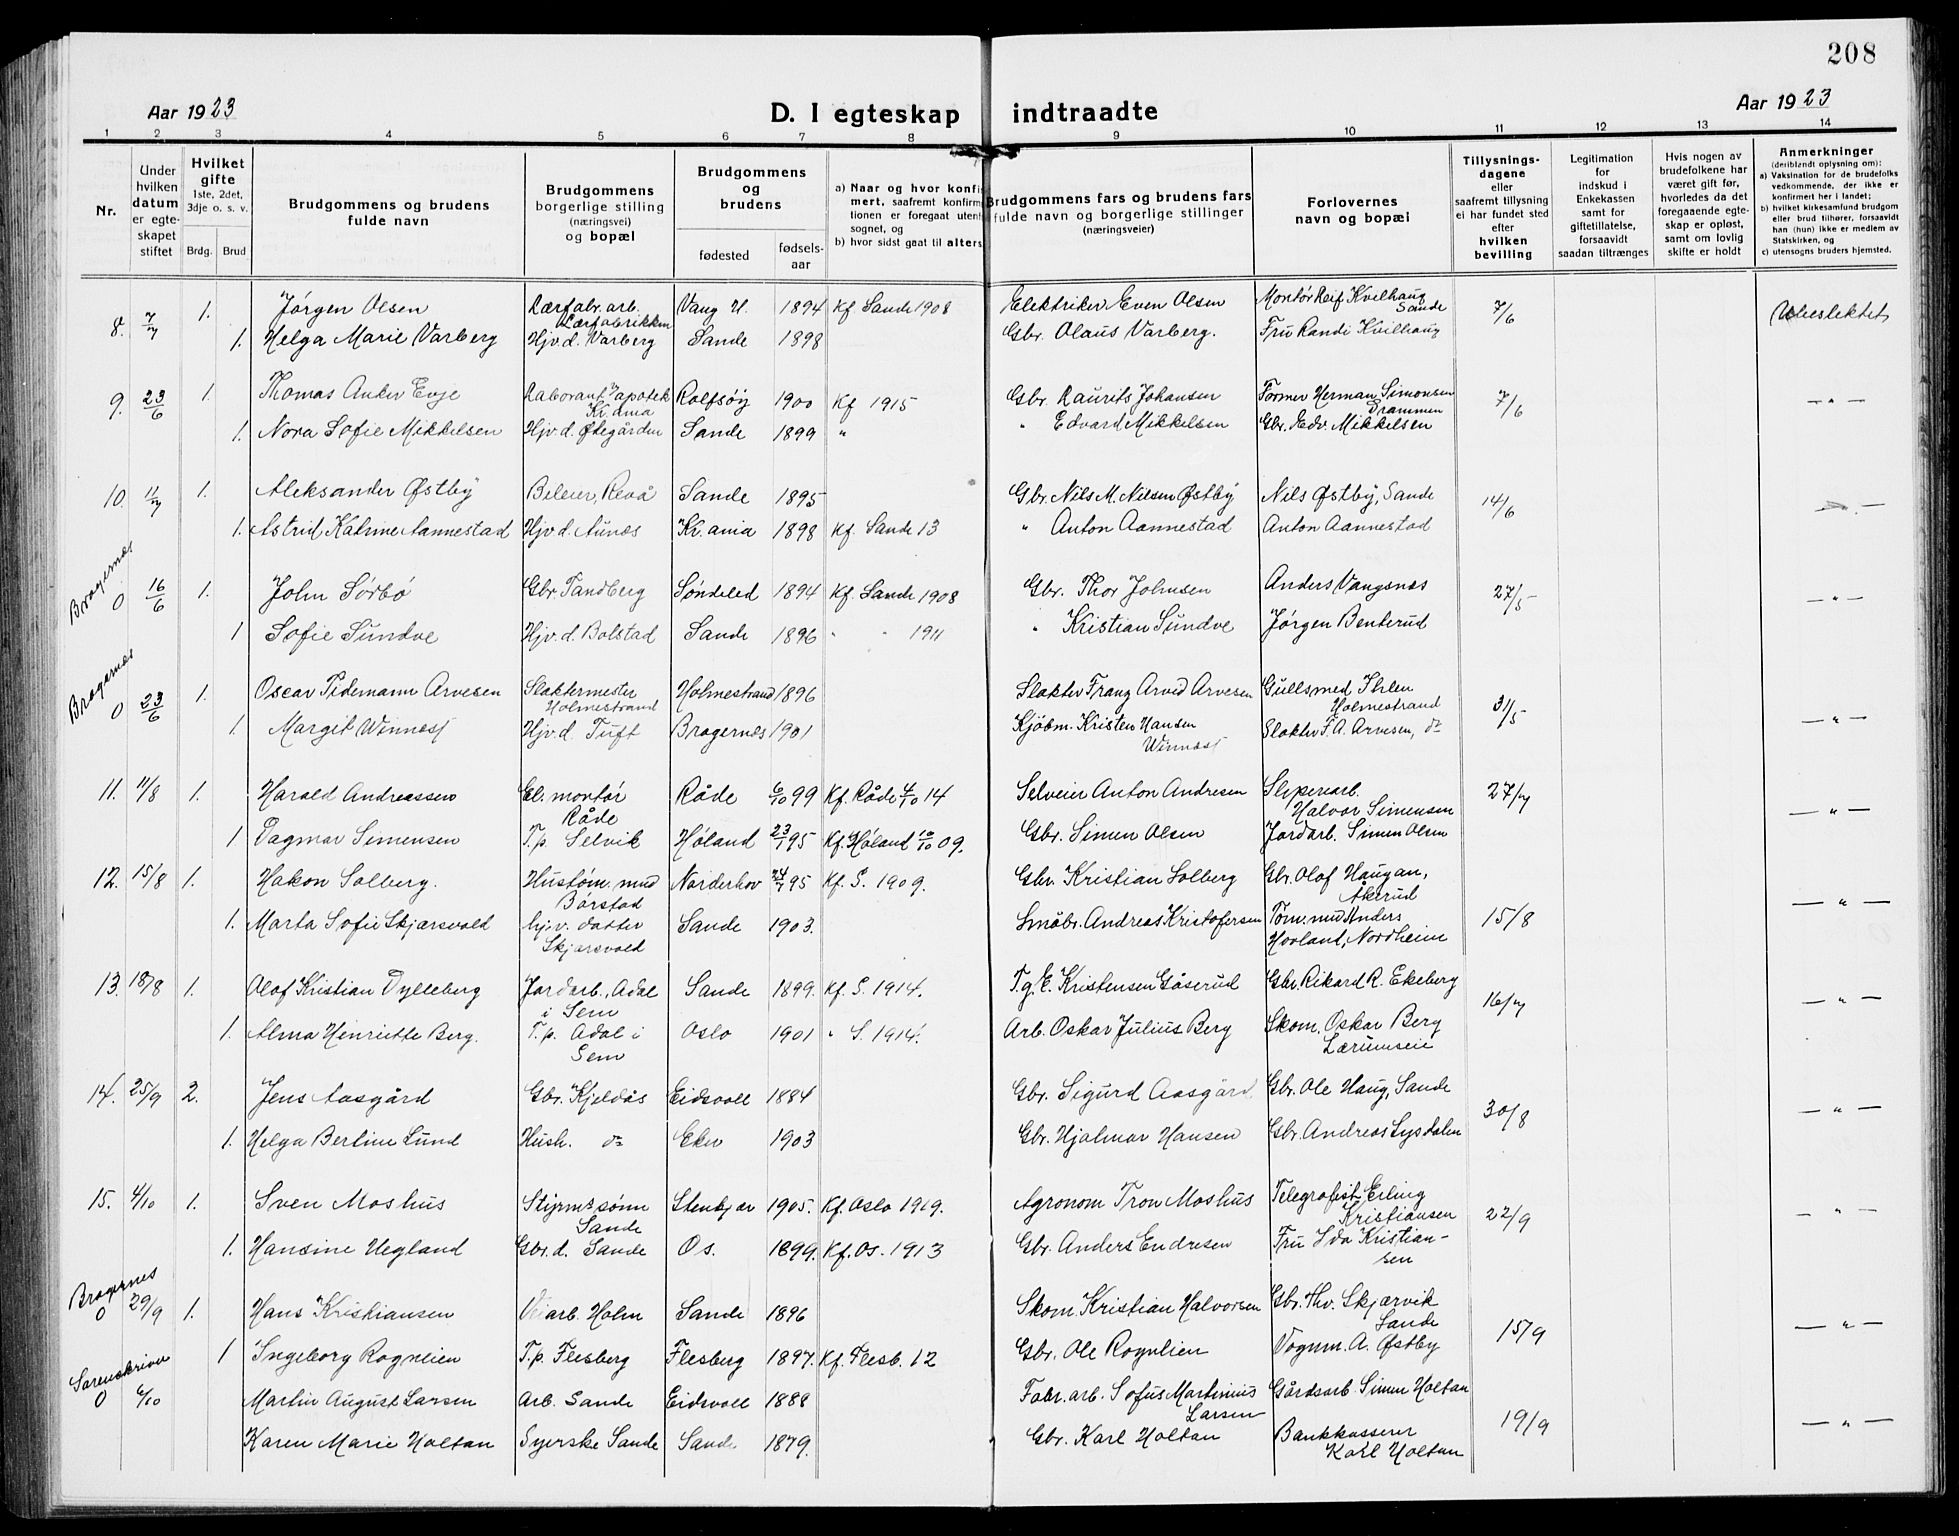 208
Aar 1923
D. I egteskap indtraadte
Aar 1923
1 2 3 4 5 6 7 8 9 10 11 12 13 14
Nr.
Under hvilken datum er egteskapet stiftet
Hvilket gifte
1ste, 2det, 3dje o. s. v.
Brdg. Brud
Brudgommens og brudens fulde navn
Brudgommens borgerlige stilling (næringsvei) og bopæl
Brudgommens og brudens
fødested
fødselsaar
a) Naar og hvor konfirmert, saafremt konfirmtionen er foregaat utenf sognet, og
b) hvor sidst gaat til alters
Brudgommens fars og brudens fars fulde navn og borgerlige stillinger (næringsveier)
Forlovernes navn og bopæl
Tillysningsdagene eller saafremt tillysning ei har fundet sted efter hvilken bevilling
Legitimation for indskud i Enkekassen samt for giftetillatelse, forsaavidt saadan tiltrænges
Hvis nogen av brudefolkene har været gift før, hvorledes da det foregaaende egteskap er opløst, samt om lovlig skifte er holdt
Anmerkninger
(deriblandt oplysning om):
a) Vaksination for de brudefolks vedkommende, der ikke er konfirmert her i landet;
b) hvilket kirkesamfund brudgom eller brud tilhører, forsaavidt han (hun) ikke er medlem av Statskirken, og
c) utensogns bruders hjemsted.
8. 7/7 1. Jørgen Olsen Lærfabr. arb. Lærfabrikken Vang H. 1894 Kf Sande 1908 Elektriker Even Olsen Montør Leif Kvilhaug Sande 7/6 Ubeslektet
1. Helga Marie Varberg Hjv. d. Varberg Sande 1898 Gbr. Olaus Varberg. Fru Randi Kvilhaug
9. 23/6 1. Thomas Anker Evje Laborant v/apotek Kr.ania Rolfsøy 1900 Kf 1915 Gbr. Laurits Johansen Former Herman Simonsen Drammen 7/6 — " —
1. Nora Sofie Mikkelsen Hjv. d. Ødegården Sande 1899 " " Edvard Mikkelsen Gbr. Edv. Mikkelsen
10. 11/7 1. Aleksander Østby Bileier, Revå Sande 1895 Gbr. Nils M. Nilsen Østby Nils Østby, Sande 14/6 — " —
1. Astrid Katrine Aannestad Hjv. d. Aunes Kr. ania 1898 Kf. Sande 13 " Anton Aannestad Anton Aannestad
Bragernes
0 16/6 1. John Sørbø Gbr. Tandberg Søndeled 1894 Kf. Sande 1908 Gbr. Thor Johnsen Anders Vangsnes 27/5 — " —
1 Sofie Sundve Hjv. d. Bolstad Sande 1896 " " 1911 " Kristian Sundve Jørgen Benterud
Bragernes
0 23/6 1. Oscar Tidemann Arvesen Slaktermester Holmestrand Holmestrand 1896 Slakter Franz Arvid Arvesen Gullsmed Ihlen Holmestrand 31/5 — " —
1 Margit Winnes Hjv. d. Tuft Bragernes 1901 Kjøbm. Kristen Hansen Winnes Slakter F. A. Arvesen, do
11. 11/8 1. Harald Andreassen El. montør Råde Råde 6/10 99 Kf. Råde 4/10 14 Selveier Anton Andresen Sliperiarb. Halvor Simensen 27/7 — " —
1 Dagmar Simensen T.p. Selvik Høland 23/1 95 Kf. Høland 10/10 09. Gbr. Simen Olsen Jordarb. Simen Olsen
12. 15/8 1. Hakon Solberg. Hustøm. mnd Borstad Norderhov 24/7 95 Kf. S. 1909. Gbr. Kristian Solberg Gbr. Olof Haugan, Åkerud 15/8 — " —
1. Marta Sofie Skjærsvold hjv. datter Skjærsvold Sande 1903. Småbr. Andreas Kristofersen Tøm. mnd Anders Hovland, Nordheim
13. 18/8 1. Olof Kristian Dylleberg Jordarb., Adal i Sem Sande 1899. Kf. S. 1914. T.g. E. Kristensen Gåserud Gbr. Rikard R. Ekeberg 16/7 — " —
1. Alma Henriette Berg. T.p. Adal i Sem Oslo 1901 " S. 1914. Arb. Oskar Julius Berg Skom. Oskar Berg Lærumseie
14. 25/9 2. Jens Aasgård Gbr. Kjeldås Eidsvoll 1884 Gbr. Sigurd Aasgård Gbr. Ole Haug, Sande 30/8 — " —
1. Helga Bertine Lund Hush. do Eker 1903 Gbr. Hjalmar Hansen Gbr. Andreas Lysdalen
15. 4/10 1. Sven Moshus Styrms sønn Sande Stenkjær 1905. Kf. Oslo 1919. Agronom Tron Moshus Telegrafist Erling Kristiansen 22/9 — " —
1. Hansine Hegland Gbr. d. Sande Os. 1899. Kf. Os. 1913 Gbr. Anders Endresen Fru Ida Kristiansen
Bragernes
0 29/9 1. Hans Kristiansen Veiarb. Holm Sande 1896 Skom. Kristian Halvorsen Gbr. Thv. Skjærvik Sande 15/9 — " —
1 Ingeborg Rognlien T.p. Flesberg Flesberg 1897. Kf. Flesb. 12 Gbr. Ole Rognlien Vognm. A. Østby
Sorenskriver
0 6/10 Martin August Larsen Arb. Sande Eidsvoll 1888 Fabr. arb. Sofus Martinius Larsen Gårdsarb. Simen Holtan 19/9 — " —
Karen Marie Holtan Syerske Sande Sande 1879. Gbr. Karl Holtan Bankkasserer Karl Holtan